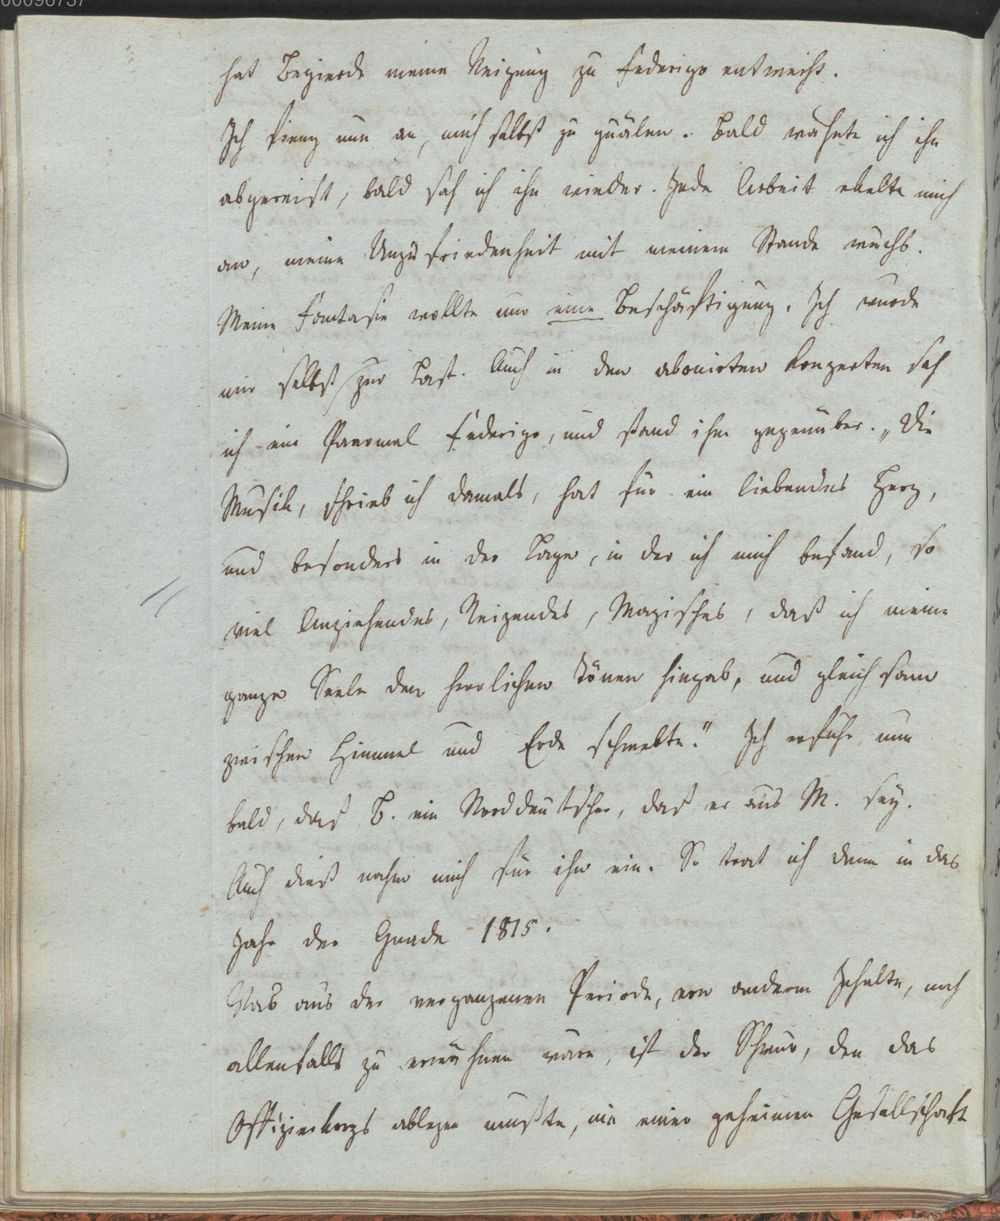 00096737
hat Begierde meine Neigung zu Federigo entweiht.
Ich fieng nun an, mich selbst zu quälen. Bald wähnte ich ihn
abgereist, bald sah ich ihn wieder. Jede Arbeit ekelte mich
an, meine Unzufriedenheit mit meinem Stande wuchs.
Meine Fantasie wollte nur eine Beschäftigung. Ich wurde
mir selbst zur Last. Auch in den abonirten Konzerten sah
ich ein Paarmal Federigo, und stand ihm gegenüber. „Die
Musik, schrieb ich damals, hat für ein liebendes Herz,
und besonders in der Lage, in der ich mich befand, so
viel Anziehendes, Reizendes, Magisches, daß ich meine
ganze Seele den herrlichen Tönen hingab, und gleichsam
zwischen Himmel und Erde schwebte." Ich erfuhr nun
bald, daß B. ein Norddeutscher, daß er aus M. sey.
Auch dieß nahm mich für ihn ein. So trat ich denn in das
Jahr der Gnade 1815.
Was aus der vergangenen Periode, von anderm Inhalte, noch
allenfalls zu erwähnen wäre, ist der Schwur, den das
Offizierkorps ablegen mußte, nie einer geheimen Gesellschaft